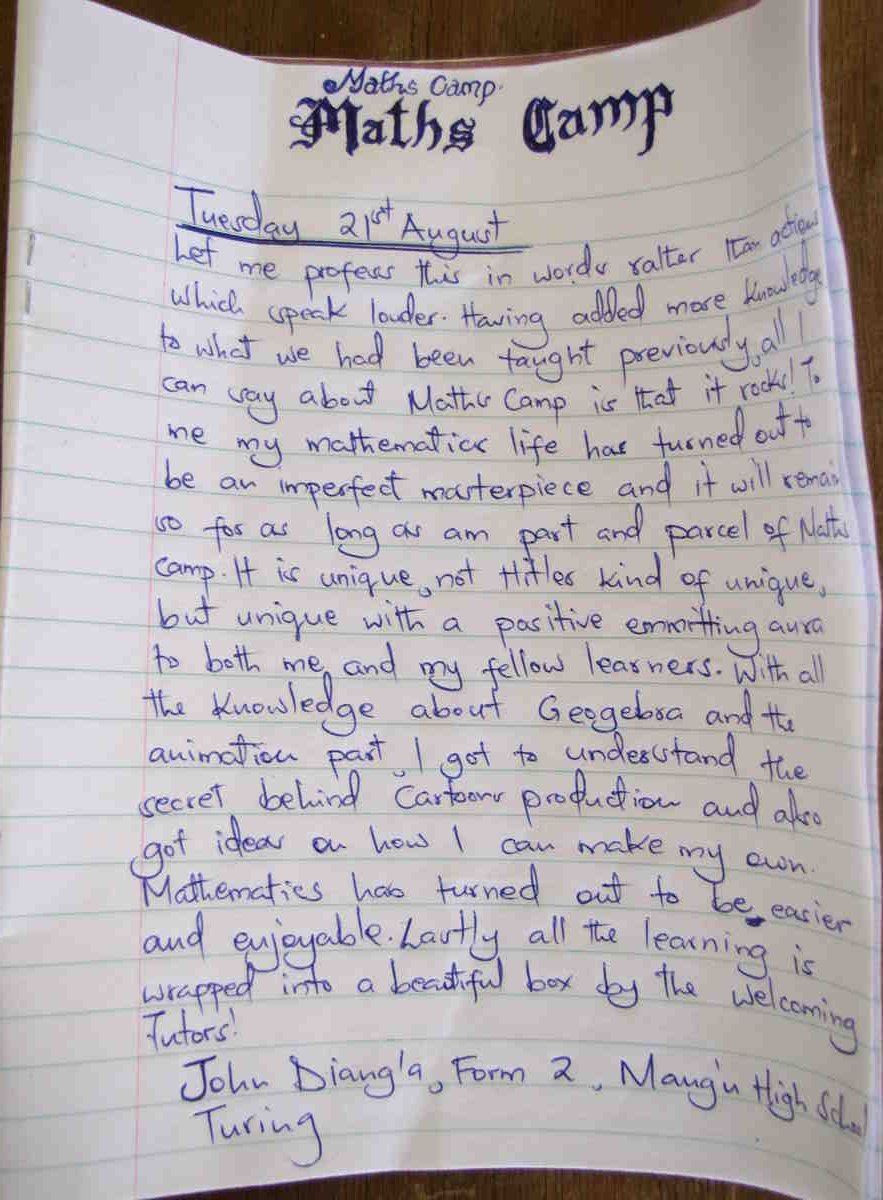 Maths Camp.
Maths Camp
Tuesday 21st August
Let me profess this in words ralter than actions
which speak louder. Having added more knowledge
to what we had been taught previously, all I
can say about Maths Camp is that it rocks! To
me my mathematics life has turned out to
be an imperfect masterpiece and it will remain
so for as long as am part and parcel of Maths
Camp. It is unique, not Hitler kind of unique,
but unique with a positive emmitting aura
to both me and my fellow learners. With all
the knowledge about Geogebra and the
animation part, I got to understand the
secret behind Cartoons production and also
got ideas on how I can make my own.
Mathematics has turned out to be easier
and enjoyable. Lastly all the learning is
wrapped into a beautiful box by the welcoming
Tutors!
John Diang'a, Form 2, Mang'u High School
Turing